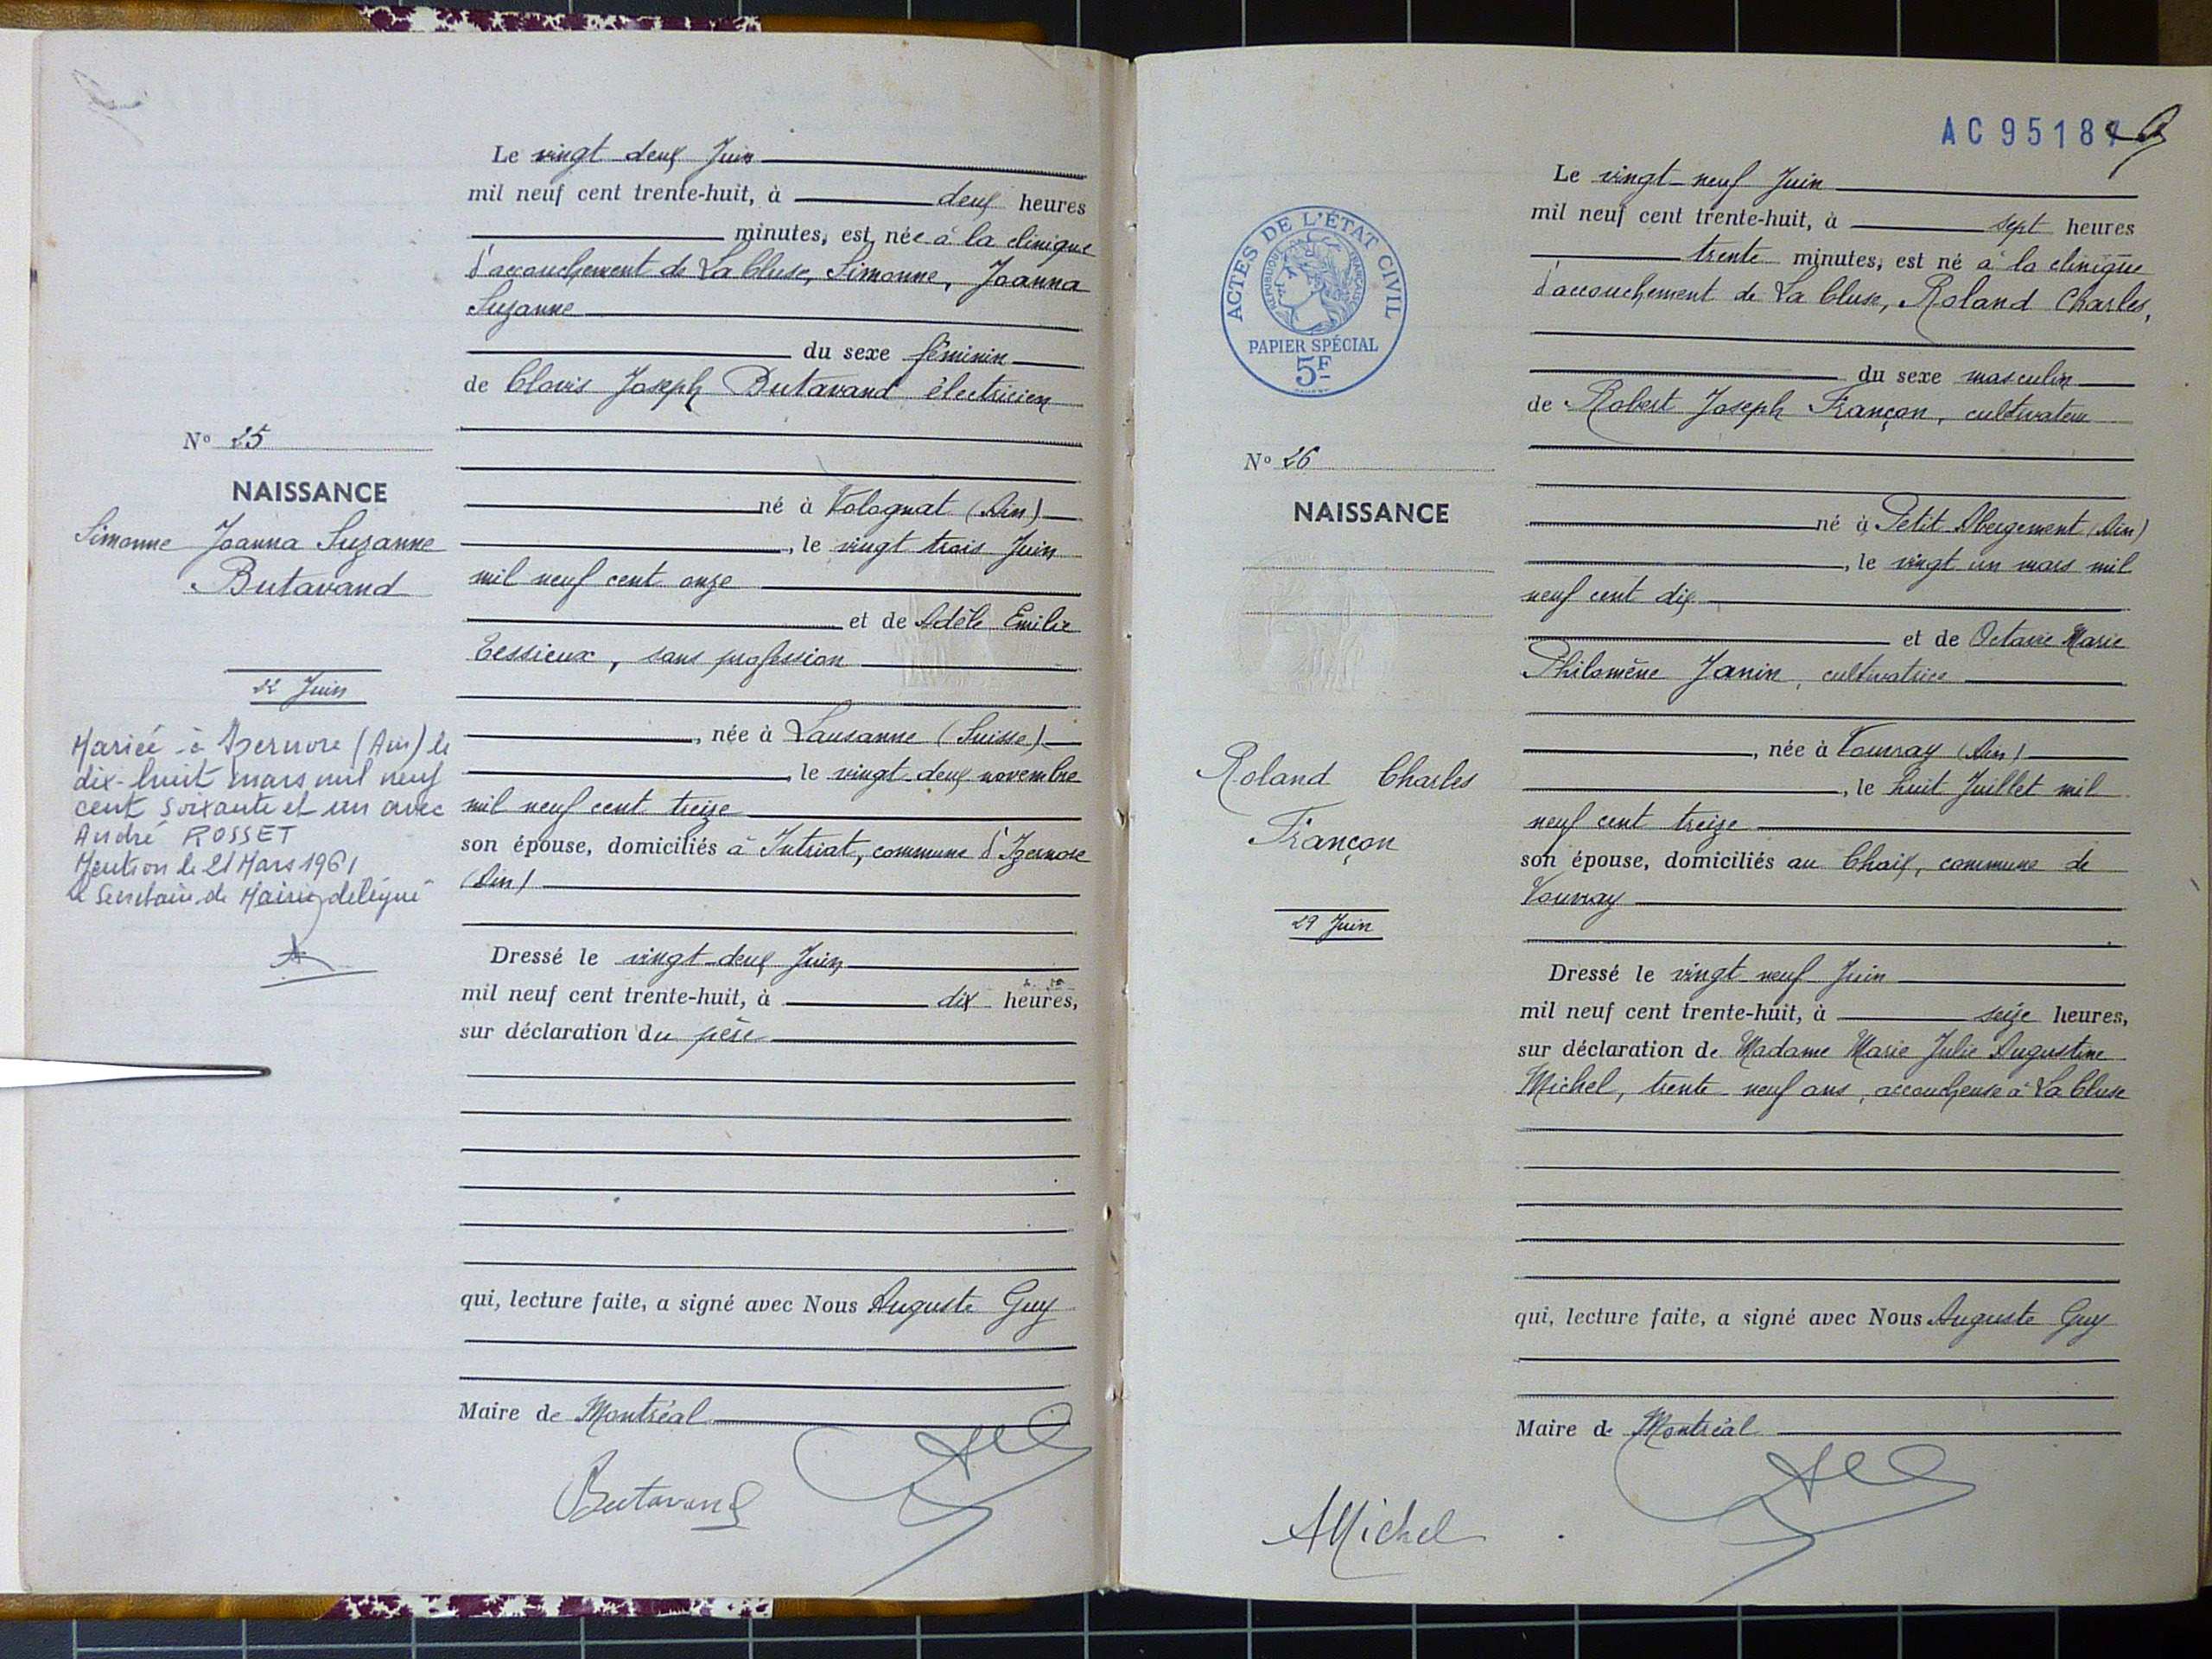 Le vingt deux Juin
mil neuf cent trente-huit, à deux heures
minutes, est née à la clinique
d'accouchement de La Cluse, Simonne, Joanna
Suzanne
du sexe féminin
de Clovis Joseph Butavand électricien
N° 25
NAISSANCE
Simonne Joanna Suzanne
Butavand
né à Volognat (Ain)
, le vingt trois Juin
mil neuf cent onze
et de Adèle Emilie
Tessieux, sans profession
22 Juin
, née à Lausanne (Suisse)
, le vingt-deux novembre
mil neuf cent treize
son épouse, domiciliés à Intriat, commune d'Izernore
(Ain)
Mariée à Izernore (Ain) le
dix-huit mars mil neuf
cent soixante et un avec
André ROSSET
Mention le 21 Mars 1961
le Secrétaire de Mairie délégué
Dressé le vingt-deux Juin
mil neuf cent trente-huit, à dix heures,
sur déclaration du père
qui, lecture faite, a signé avec Nous Auguste Guy
Maire de Montréal
Butavand
AC 9518
Le vingt-neuf Juin
mil neuf cent trente-huit, à sept heures
trente minutes, est né à la clinique
d'accouchement de La Cluse, Roland Charles,
du sexe masculin
de Robert Joseph Françon, cultivateur
ACTES DE L'ÉTAT CIVIL
RÉPUBLIQUE FRANÇAISE
PAPIER SPÉCIAL
5F
N° 26
NAISSANCE
né à Petit Abergement (Ain)
, le vingt un mars mil
neuf cent dix
et de Octavie Marie
Philomène Janin, cultivatrice
, née à Vouvray (Ain)
, le huit Juillet mil
neuf cent treize
son épouse, domiciliés au Chaix, commune de
Vouvray
Roland Charles
Françon
29 Juin
Dressé le vingt neuf Juin
mil neuf cent trente-huit, à seize heures,
sur déclaration de Madame Marie Julie Augustine
Michel, trente-neuf ans, accoucheuse à La Cluse
qui, lecture faite, a signé avec Nous Auguste Guy
Maire de Montréal
AMichel